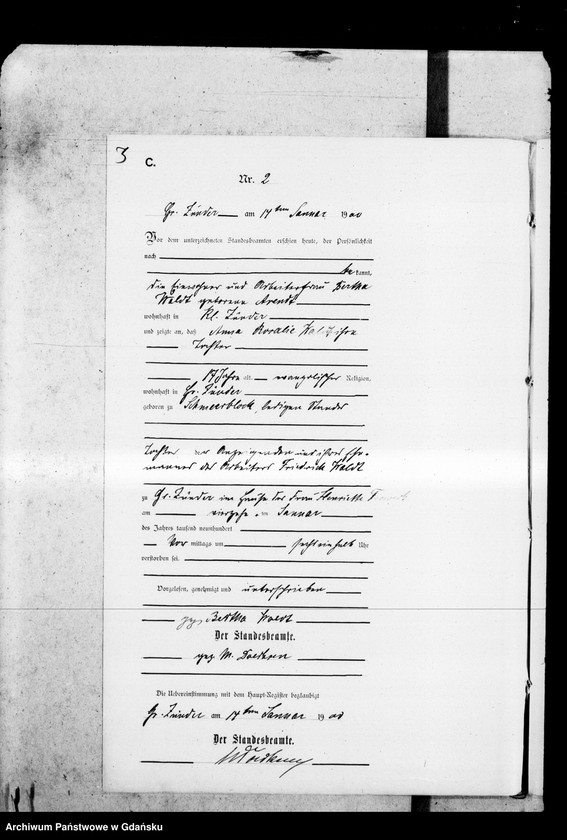 3
C.
Nr. 2
Gr. Zünder am 17ten Januar 1900
Vor dem unterzeichneten Standesbeamten erschien heute, der Persönlichkeit
nach
bekannt,
die Einwohner und Arbeiterfrau Bertha
Waldt geborene Arendt
wohnhaft in Kl. Zünder
und zeigte an, daß Anna Rosalie Waldt ihre
Tochter
17 Jahre alt, evangelischer Religion,
wohnhaft in Gr. Zünder
geboren zu Schmeerblock, ledigen Standes
Tochter der Anzeigenden und ihres Ehe-
mannes des Arbeiters Friedrich Waldt
zu Gr. Zünder im Hause der Frau Henriette
am ten Januar
des Jahres tausend neunhundert
Vor mittags um Uhr
verstorben sei.
Vorgelesen, genehmigt und unterschrieben
gez. Bertha Waldt
Der Standesbeamte.
gez. M.
Die Uebereinstimmung mit dem Haupt-Register beglaubigt
Gr. Zünder am 17ten Januar 1900
Der Standesbeamte.
Archiwum Państwowe w Gdańsku